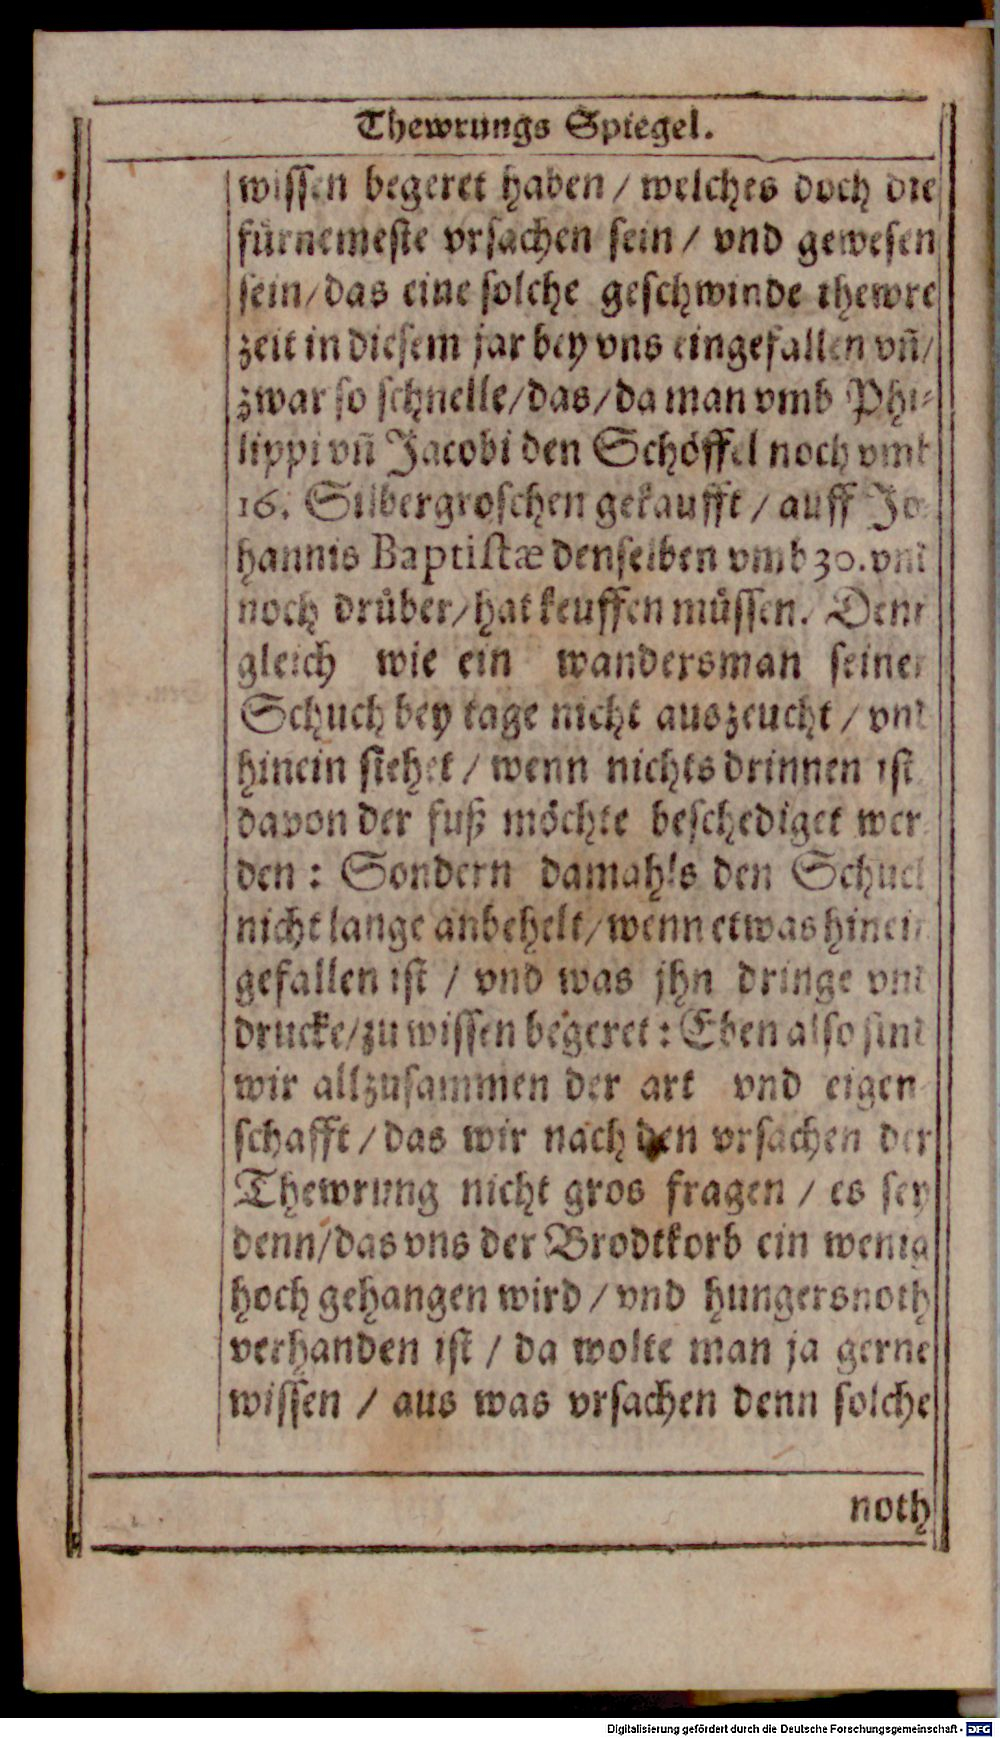 Thewrungs Spiegel.
wissen begeret haben / welches doch die
fürnemeste vrsachen sein / vnd gewesen
sein / das eine solche geschwinde thewre
zeit in diesem jar bey vns eingefallen vñ /
zwar so schnelle / das / da man vmb Phi⸗
lippi vñ Jacobi den Schöffel noch vmb
16. Silbergroschen gekaufft / auff Jo⸗
hannis Baptistæ denselben vmb 30. vnd
noch drüber / hat keuffen müssen. Denn
gleich wie ein wandersman seinen
Schuch bey tage nicht auszeucht / vnd
hinein siehet / wenn nichts drinnen ist
davon der fuß möchte beschediget wer⸗
den : Sondern damahls den Schuch
nicht lange anbehelt / wenn etwas hinein
gefallen ist / vnd was jhn dringe vnd
drucke / zu wissen begeret : Eben also sind
wir allzusammen der art vnd eigen⸗
schafft / das wir nach den vrsachen der
Thewrung nicht gros fragen / es sey
denn / das vns der Brodtkorb ein wenig
hoch gehangen wird / vnd hungersnoth
verhanden ist / da wolte man ja gerne
wissen / aus was vrsachen denn solche
noth
Digitalisierung gefördert durch die Deutsche Forschungsgemeinschaft - DFG